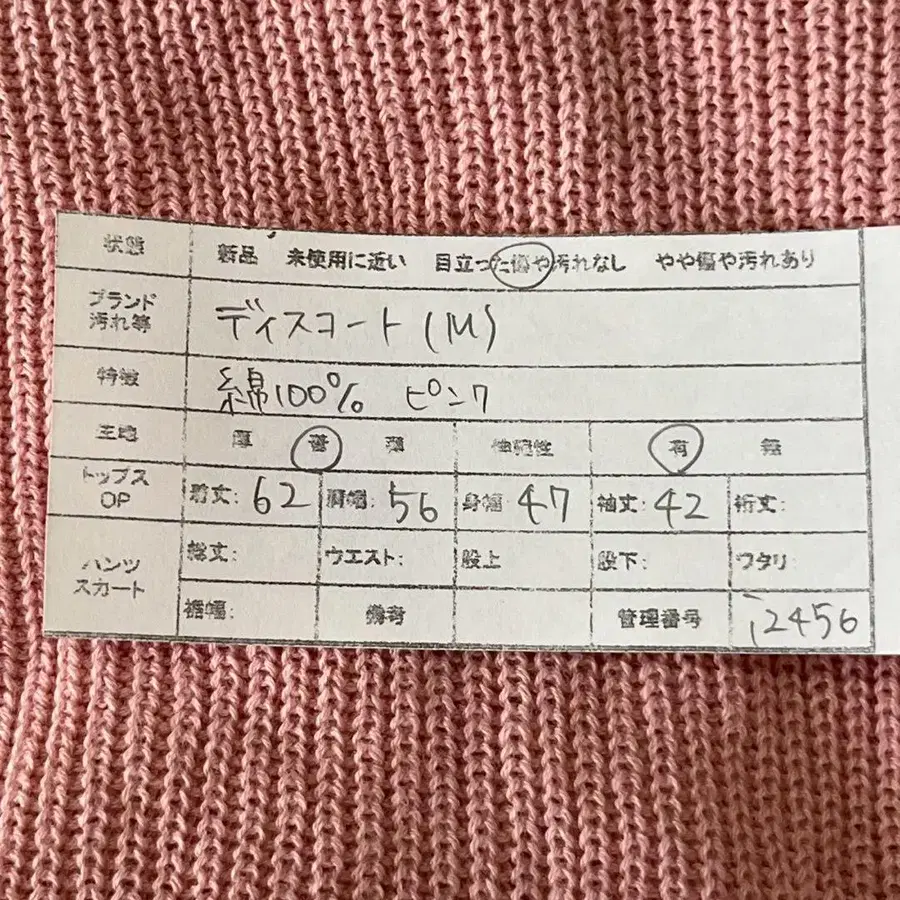 状態 新品 未使用に近い 目立った傷や汚れなし やや傷や汚れあり
ブランド
汚れ等 ディスコート(M)
特徴 綿100% ピンク
生地 厚 普 薄 伸縮性 有 無
トップス
OP 着丈: 62 肩幅: 56 身幅: 47 袖丈: 42 裄丈:
パンツ
スカート 総丈: ウエスト: 股上 股下: ワタリ:
裾幅: 備考 管理番号 i2456